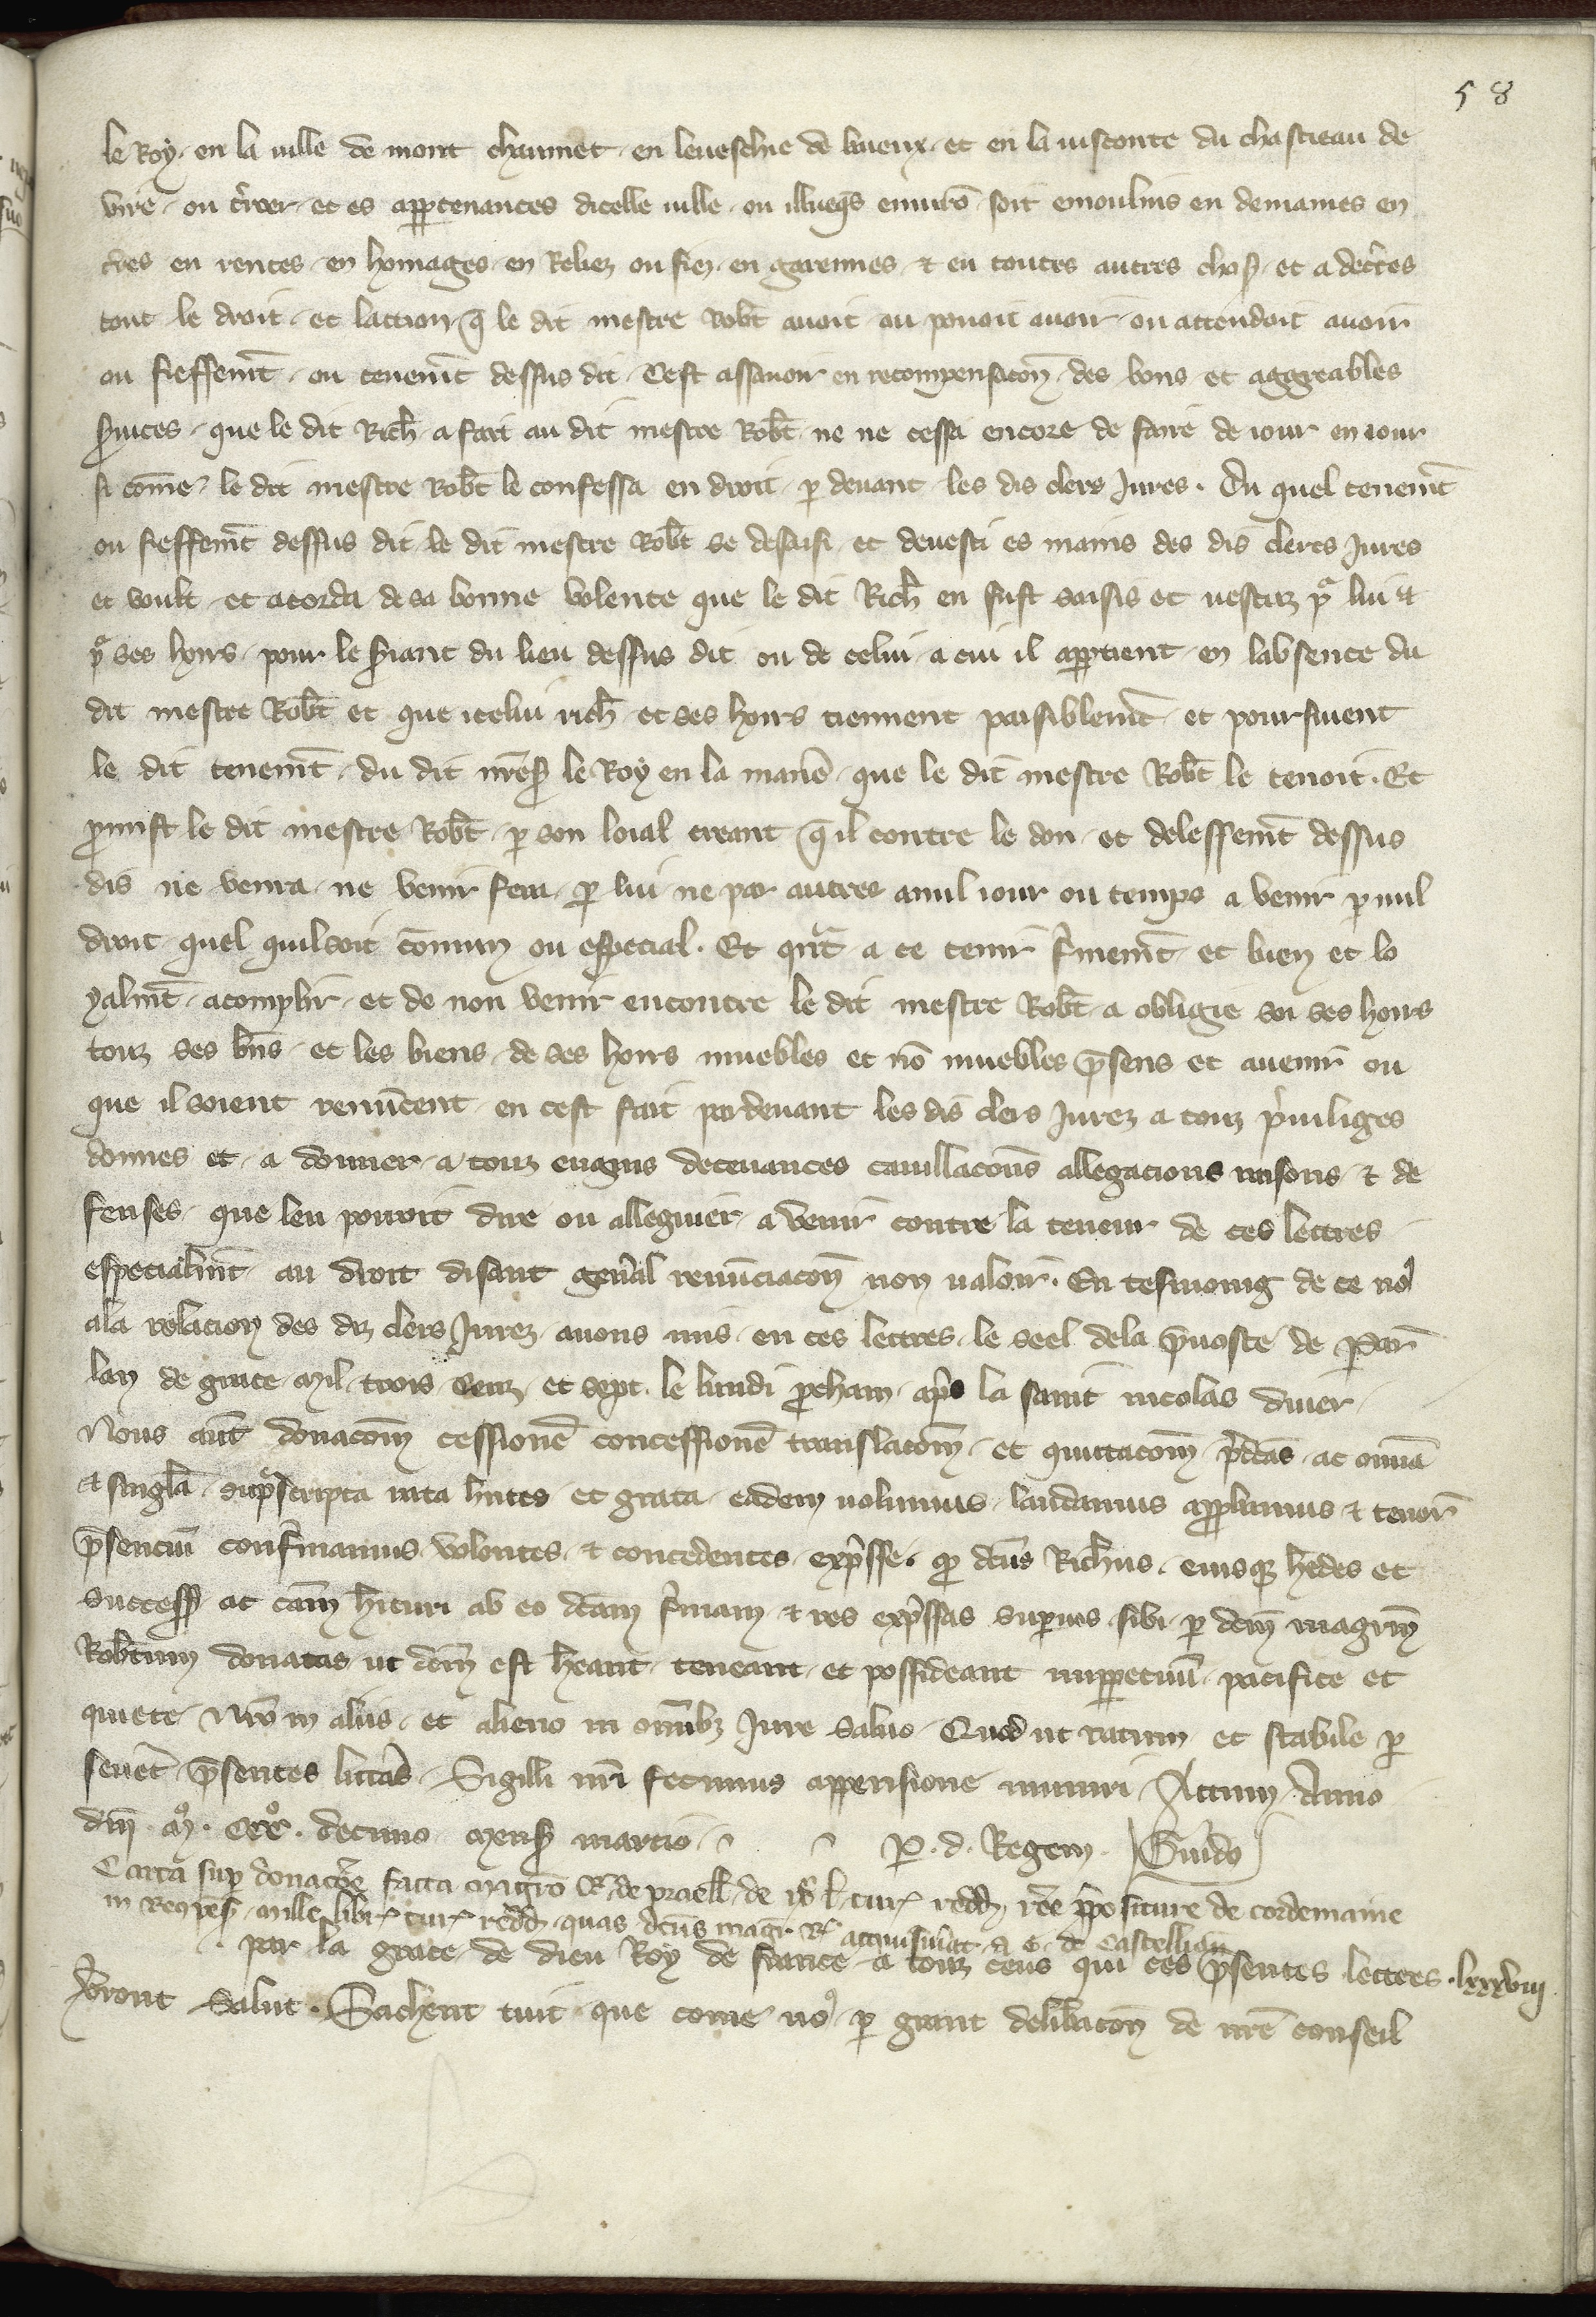 58
le Roy. en la uille de mont chaumet. en leueschie de baieux. et en la uisconte du chasteau de
vire. ou t̾roer. et es app̱tenances dicelle uille. ou illueq̄s enuirō. soit emoulins en demaines en
t̾res en rentes en homages en Reliez ou fiez. en garennes & en toutes autres chos̄. et a dec̾tes
tout le droit. et laction q̄ le dit mestre Robt̄ auoit ou pouoit auoir ou attendoit auoir
ou fieffem̄t. ou tenem̄t dessus dit. Cest assauoir en recompensacōn des bons et aggreables
s̾uices. que le dit Rich̄ a fait au dit mestre Robt̄ ne ne cessa encore de faire de iour en iour
si cōme. le dit mestre Robt̄ le confessa en droit p̱ deuant les dis clers Iures. Du quel tenem̄t
ou fieffem̄t dessus dit le dit mestre Robt̄ se desaisi et deuesti es mains des dis clercs Iures
et voult et acorda de sa bonne volente que le dit Rich̄ en fust saisis et uestuz pͬ lui &
pͬ ses hoirs. pour le s̾iant du lieu dessus dit ou de celui a cui il app̱tient en labsence du
dit mestre Robt̄ et que icelui rich̄ et ses hoirs tiennent paisiblem̄t et poursiuent
le dit tenem̄t. du dit nr̄es̄ le Roy en la manīe. que le dit mestre Robt̄ le tenoit. Et
ꝓmist le dit mestre Robt̄ p̱ son loial creant q̄ il contre le don et delessem̄t dessus
dis ne venra ne venir fera p̱ lui ne par autres anul iour ou temps a venir p̱ nul
droit quel quil soit cōmun ou especial. Et qn̄t a ce tenir f̾mem̄t et bien et lo
yalm̄t acomplir. et de non venir encontre le dit mestre Robt̄ a obligie soi ses hoirs
touz ses bn̄s et les biens de ses hoirs muebles et nō muebles p̄sens et auenir ou
que il soient renūcent en cest fait pardeuant les dis clers Iurez a touz p̾uiliges
donnes et a donner a touz engins deceuances cauillacōns allegacions raisons & de
fenses que len pourroit dire ou alleguier a venir contre la teneur de ces lectres
especialm̄t au droit disant gen̾al renūciacōn non ualoir. En tesmoing de ce noꝰ
ala relacion des diz clers Iurez auons mis en ces lectres le seel dela p̄uoste de Par̄
lan de grace mil trois Cenz et sept. le lundi ꝓchain ap̾s la saint nicolas diuer.
Nous aut̄ donacōm cessionē concessionē translacōm et quittacōm p̾dc̄as ac omīa
& singl̄a sup̾scripta rata hn̄tes et grata eadem uolumus laudamus app̱bamus & tenor̄
p̄senciū conf̾mamus. volentes & concedentes exp̾sse. ꝙ dc̄us Rich̄us. eiusq̱ hēdes et
success̄ ac cām hīturi ab eo dc̄am f̾mam & res exp̾ssas sup̱ius sibi p̱ dc̄m magrm̄
Robt̄um donatas ut dc̄m est hēant teneant et possideant imp̱petuū pacifice et
quiete. Nr̄o in aliis. et alieno in omībz Iure saluo. Quod ut ratum et stabile p̱
seuet̾ p̄sentes litt̾as Sigilli nr̄i fecimus appensione muniri. Actum Anno
dn̄i. mͦ. CCCͦ. decimo mens̄ marcio. P. d. Regem. Guido
Carta sup̱ donacōe facta magrō R. de praell̄. de l tur. redd̄ prepositure de cordemaine
in Recp̄ens̄. mille libr̄ tur. redd̄ quas dc̄us magr̄ R. acquisiu̾at a G. de Castellion
par la grace de dieu Roy de france a touz ceus qui ces p̄sentes lectres lxxxviij.
v̾ront Salut. Sachent tuit que come noꝰ p̱ grant delib̾acōn de nr̄e conseil